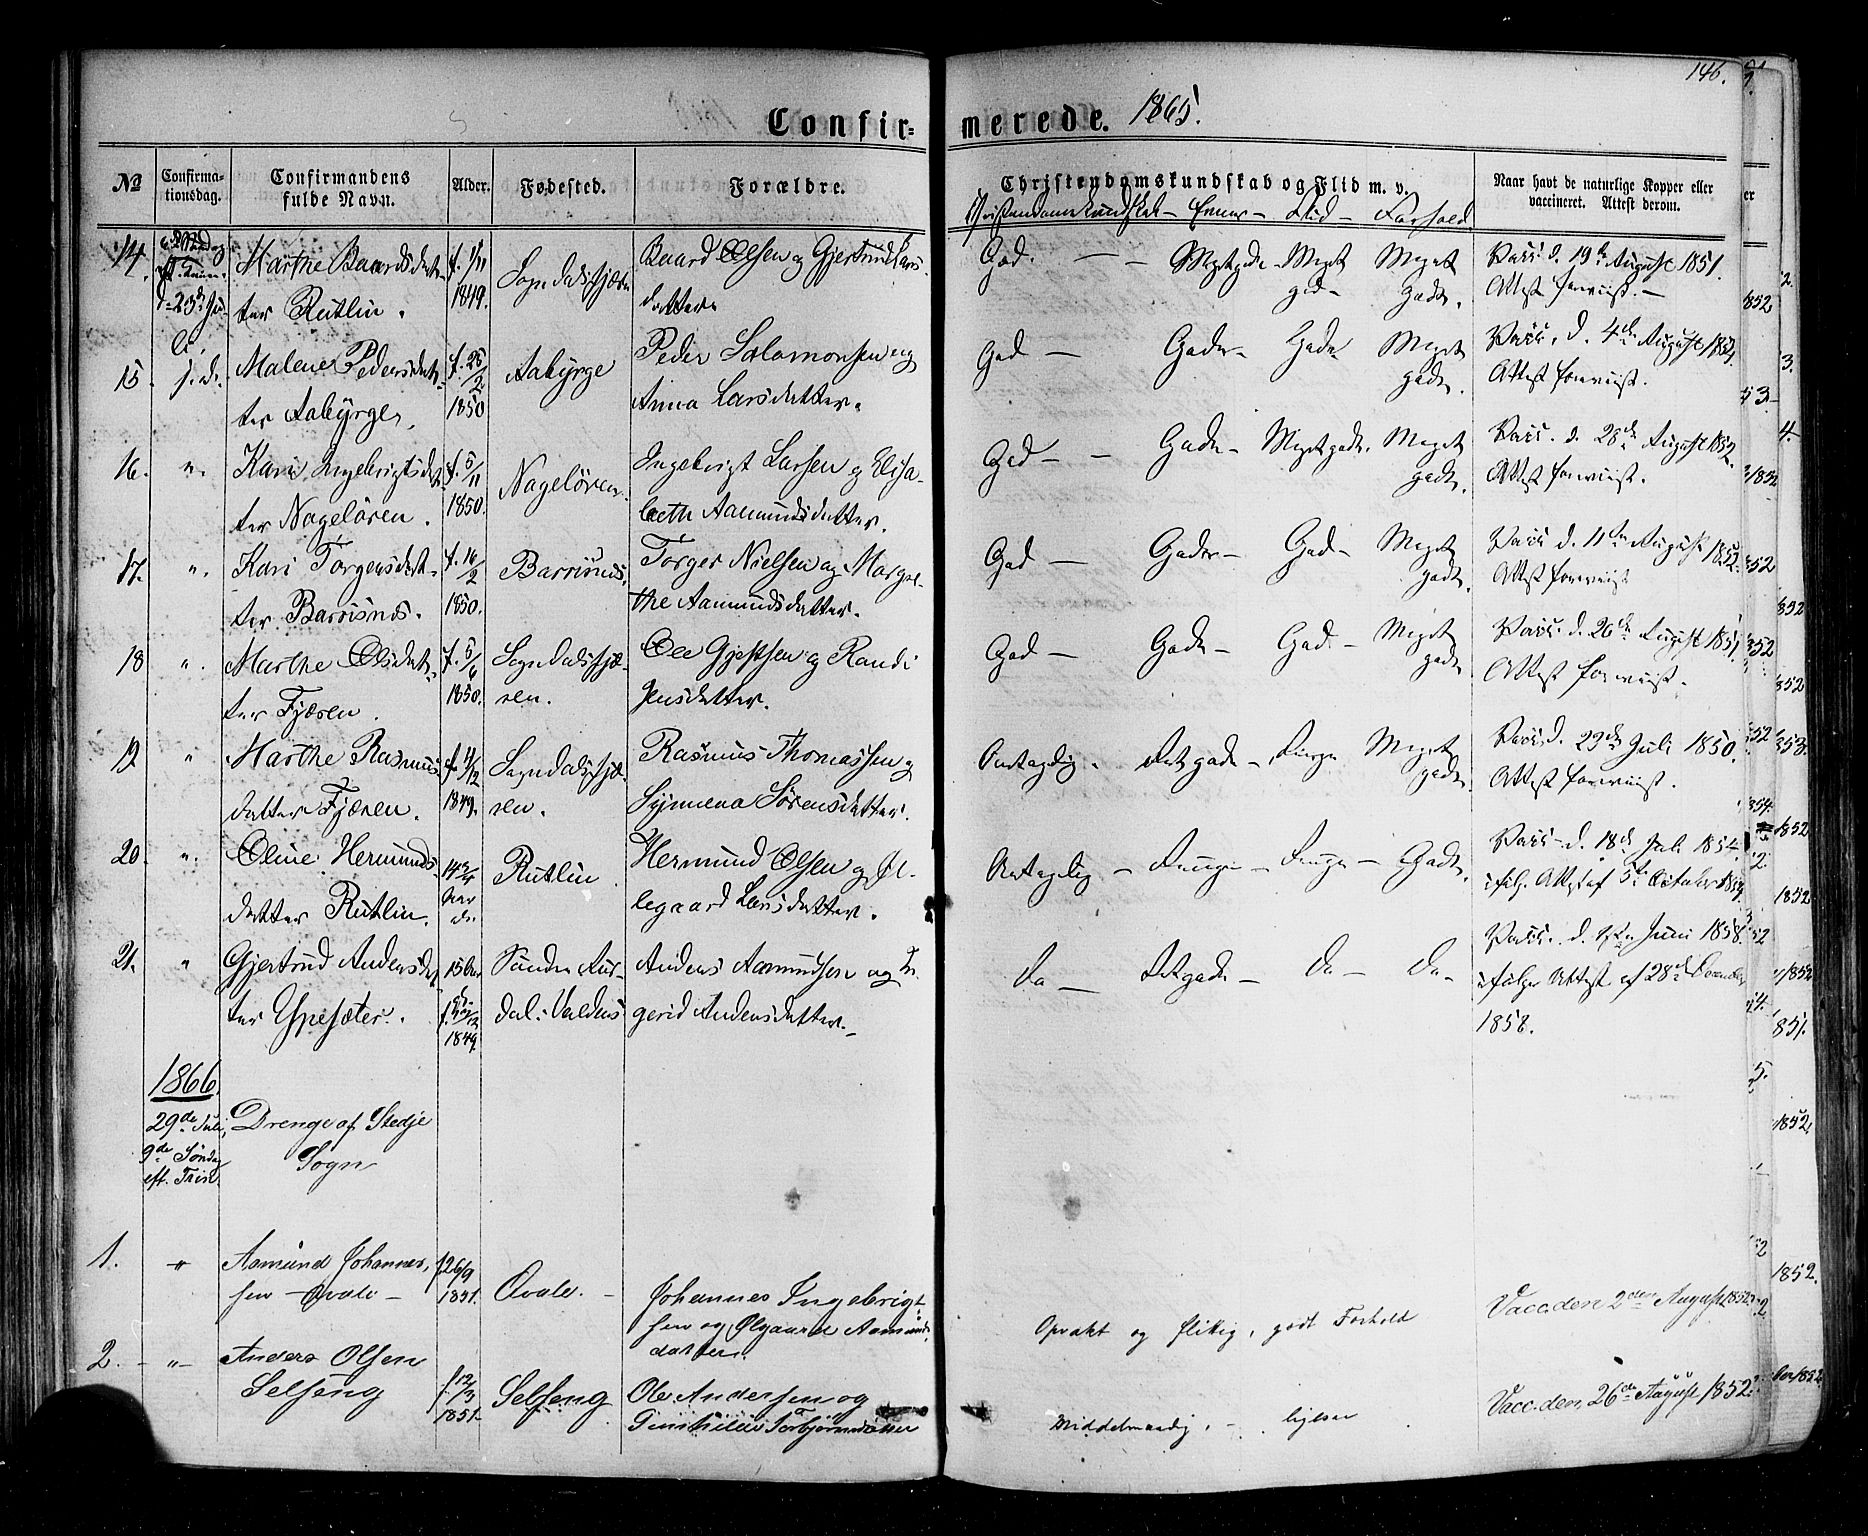 146.
Confirmerede. 1865.
No
Confirmationsdag.
Confirmandens fulde Navn.
Alder.
Fødested.
Forældre.
Christendomskundskab og Flid m. v.
Naar havt de naturlige Kopper eller vaccineret. Attest derom.
Christendomskundskab – Evner – Flid – Forhold
14.
d. 23de Ju-
li
Marthe Baardsdat-
ter Rutlin.
f. 1/11
1849.
Sogndalsfjæren
Baard Olsen og Gjertrud Lars-
datter
God. – – Megetgode – Meget
god – Meget
godt.
Vacc. d. 19de August 1851.
Attest foreviist. –
15. s. d.
Malene Pedersdat-
ter Aabyrge,
f. 25/2
1850
Aabyrge
Peder Salomonsen og
Anna Larsdatter.
God – Gode – Gode Meget
godt.
Vacc. d. 4de August 1852.
Attest foreviist.
16. "
Kari Ingebrigtsdat-
ter Nageløren.
f. 5/11
1850.
Nageløren.
Ingebrigt Larsen og Elisa-
beth Aamundsdatter.
God – – Gode – Megetgode. Meget
godt.
Vacc. d. 28de August 1852.
Attest foreviist.
17. "
Kari Torgersdat-
ter Barsnes.
f. 16/2
1850.
Barsnes.
Torger Nielsen og Margre-
the Aamundsdatter.
God – Gode – God – Meget
godt.
Vacc. d. 11te August 1852.
Attest foreviist
18 "
Marthe Olsdat-
ter Fjæren.
f. 5/6
1850.
Sogndalsfjæ-
ren.
Ole Gjestsen og Randi
Jensdatter.
God – Gode – God – Meget
godt
Vacc. d. 26de August 1851.
Attest foreviist.
19 "
Marthe Rasmus-
datter Fjæren.
1849.
Sogndalsfjæ-
ren.
Rasmus Thomassen og
Synneva Sørensdatter.
Antagelig. Retgode – Ringe Meget
godt.
Vacc. d. 29de Juli 1850.
Attest foreviist.
20. "
Oline Hermunds-
datter Rutlin.
14 3/4
Rutlin.
Hermund Olsen og Øl-
legaard Larsdatter.
Antagelig – Ringe – Ringe – Godt.
Vacc. d. 18de Juli 1854
ifølg. Attest af 5te October
21. "
Gjertrud Andersdat-
ter Ypesæter.
15
1849.
Søndre Aur-
dal. Valders
Anders Aamundsen og In-
gerid Andersdatter. –
Do – Retgode – Do – Do –
Vacc. d. Juni 1858
ifølge Attest af 28de December
1858.
1866.
29de Juli,
9de Søndag
eft. Trin.
Drenge af Stedje
Sogn
1. "
Aamund Johannes-
sen – Qvale –
f 26/9
1851.
Qvale. –
Johannes Ingebrigt-
sen og Ølgaard Aamunds-
datter.
Opvakt og flittig, godt Forhold
Vacc. den 2den August 1852
2. – "
Anders Olsen
Selseng
f. 12/3
1851
Selseng
Ole Andersen og
Torbjørnsdatter
Middelmaadig. – . ligesaa .
Vacc. den 26de August 1852